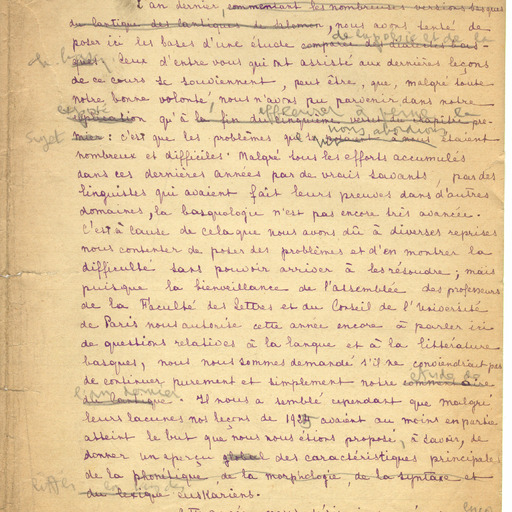 L'an dernier, commentant les nombreuses versions basques
du Cantique des Cantiques de Salomon, nous avons tenté de
de la poésie et de la
poser ici les bases d'une étude comparée des dialectes bas-
ques. Ceux d'entre vous qui ont assisté aux dernières leçons
de ce cours se souviennent, peut être, que, malgré toute
notre bonne volonté, nous n'avons pu parvenir dans notre
exposé effleurer à peine le
explication qu'à la fin du cinquième verset du chapitre pre-
sujet nous abordions
mier : c'est que les problèmes qui se étaient
nombreux et difficiles. Malgré tous les efforts accumulés
dans ces dernières années par de vrais savants, par des
linguistes qui avaient fait leurs preuves dans d'autres
domaines, la bascologie n'est pas encore très avancée.
C'est à cause de cela que nous avons dû à diverses reprises
nous contenter de poser des problèmes et d'en montrer la
difficulté sans pouvoir arriver à les résoudre ; mais
puisque la bienveillance de l'assemblée des professeurs
de la Faculté des Lettres et du Conseil de l'Université
de Paris nous autorise cette année encore à parler ici
de questions relatives à la langue et à la littérature
basques, nous nous sommes demandé s'il ne conviendrait pas
étude de
de continuer purement et simplement notre commentaire
du cantique. Il nous a semblé cependant que malgré
leurs lacunes nos leçons de 192 avaient au moins en partie
atteint le but que nous nous étions proposé, à savoir, de
donner un aperçu global des caractéristiques principales
de la phonétique, de la morphologie, de la syntaxe et
du lexique euskariens.